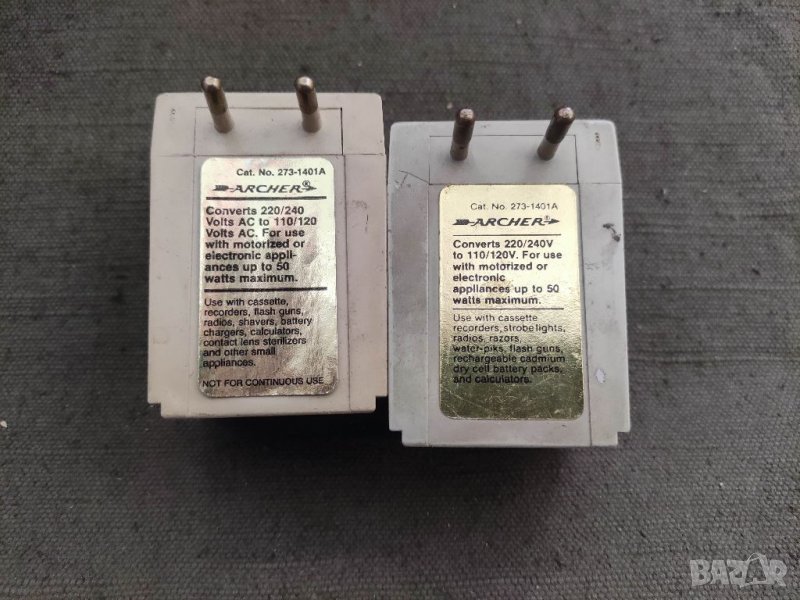 Cat. No. 273-1401A
ARCHER®
Converts 220/240
Volts AC to 110/120
Volts AC. For use
with motorized or
electronic appli-
ances up to 50
watts maximum.
Use with cassette,
recorders, flash guns,
radios, shavers, battery
chargers, calculators,
contact lens sterilizers
and other small
appliances.
NOT FOR CONTINUOUS USE
Cat. No. 273-1401A
ARCHER
Converts 220/240V
to 110/120V. For use
with motorized or
electronic
appliances up to 50
watts maximum.
Use with cassette
recorders, strobe lights,
radios, razors,
water-piks, flash guns,
rechargeable cadmium
dry cell battery packs,
and calculators.
BAZAR